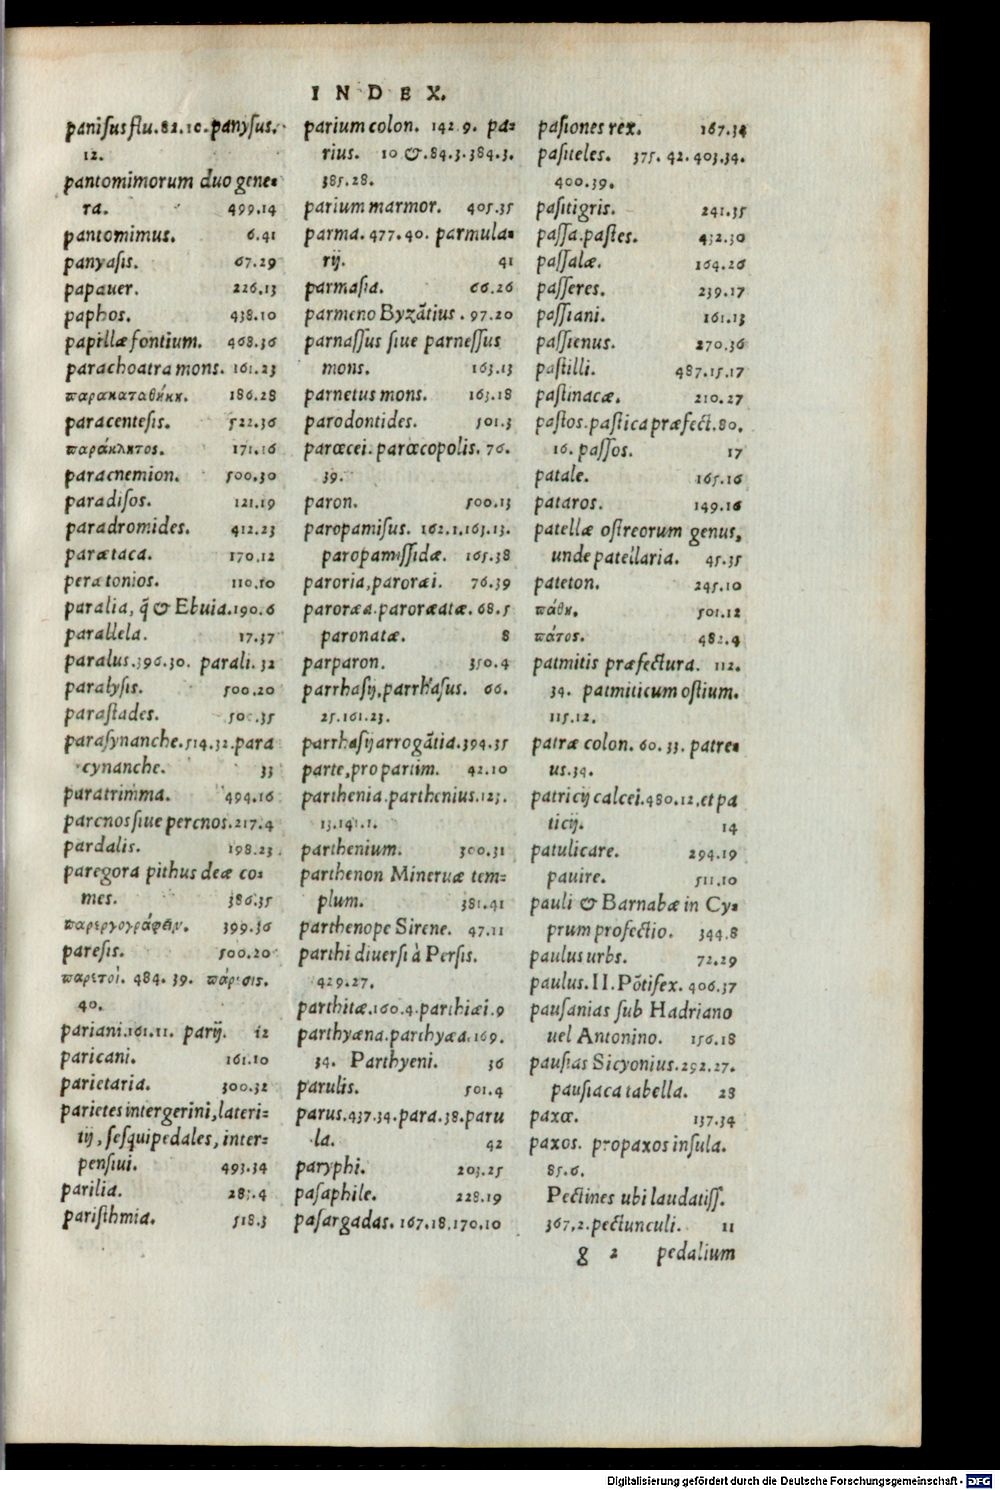 INDEX.
panisus flu.82.10.panysus.
12.
pantomimorum duo gene=
ra. 499.14
pantomimus. 6.41
panyasis. 67.29
papauer. 226.13
paphos. 438.10
papillæ fontium. 468.36
parachoatra mons. 161.23
παρακαταθήκη. 186.28
paracentesis. 522.36
παράκλητος. 171.16
paracnemion. 500.30
paradisos. 121.19
paradromides. 412.23
parætaca. 170.12
peratonios. 110.10
paralia, q̃ & Ebuia.190.6
parallela. 17.37
paralus.396.30. parali. 32
paralysis. 500.20
parastades. 35
parasynanche.514.32.para
cynanche. 33
paratrimma. 494.16
parcnos siue percnos.217.4
pardalis. 198.23
paregora pithus deæ co=
mes. 386.35
399.36
paresis. 500.20
παρετοί. 484.39. πάρεσις.
40.
pariani.161.11. parij. 12
paricani. 161.10
parietaria. 300.32
parietes intergerini, lateri=
tij, sesquipedales, inter=
pensiui. 493.34
parilia. 285.4
paristhmia. 518.3
parium colon. 142.9. pa=
rius. 10 &.84.3.384.3.
385.28.
parium marmor. 405.35
parma.477.40. parmula=
rij. 41
parmasia. 66.26
parmeno Byzãtius.97.20
parnassus siue parnessus
mons. 163.13
parnetus mons. 163.18
parodontides. 501.3
parœcei.parœcopolis.76.
39.
paron. 500.13
paropamisus. 162.1.163.13.
paropamissidæ. 165.38
paroria,paroræi. 76.39
paroræa.paroræatæ.68.5
paronatæ. 8
parparon. 350.4
parrhasij,parrhasus. 66.
25.161.23.
parrhasij arrogãtia.394.35
parte,pro partim. 42.10
parthenia.parthenius.123.
13.141.1.
parthenium. 300.31
parthenon Mineruæ tem=
plum. 381.41
parthenope Sirene. 47.11
parthi diuersi à Persis.
429.27.
parthitæ.160.4.parthiæi.9
parthyæna.parthyæa.169.
34. Parthyeni. 36
parulis. 501.4
parus.437.34.para.38.paru
la. 42
paryphi. 203.25
pasaphile. 228.19
pasargadas.167.18.170.10
pasiones rex. 167.34
pasiteles. 375.42.403.34.
400.39.
pasitigris. 241.35
passa.pastes. 432.30
passalæ. 164.26
passeres. 239.17
passiani. 161.13
passienus. 270.36
pastilli. 487.15.17
pastinacæ. 210.27
pastos.pastica præfect.80.
16. passos. 17
patale. 165.16
pataros. 149.16
patellæ ostreorum genus,
unde patellaria. 45.35
pateton. 245.10
πάθη. 501.12
πάτος. 482.4
patmitis præfectura. 112.
34. patmiticum ostium.
115.12.
patræ colon.60.33.patre=
us.34.
patricij calcei.480.12.et pa
ticij. 14
patulicare. 294.19
pauire. 511.10
pauli & Barnabæ in Cy=
prum profectio. 344.8
paulus urbs. 72.29
paulus.II.Põtifex.406.37
pausanias sub Hadriano
uel Antonino. 156.18
pausias Sicyonius.292.27.
pausiaca tabella. 28
paxœ. 137.34
paxos. propaxos insula.
85.6.
Pectines ubi laudatiss.
367,2.pectunculi. 11
g 2 pedalium
Digitalisierung gefördert durch die Deutsche Forschungsgemeinschaft - DFG